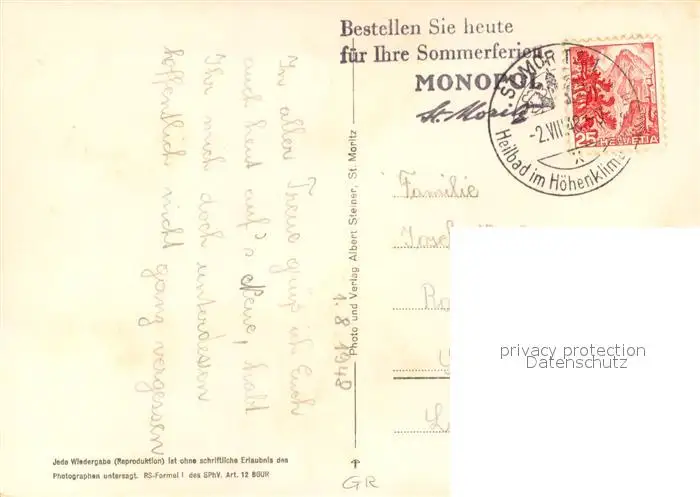 Bestellen Sie heute
für Ihre Sommerferien
MONOPOL
St. Moritz
ST. MORITZ
-2.VIII.48
Heilbad im Höhenklima
25 HELVETIA
In aller Treue grüß ich Euch
auch heut auf's Neue, habt
Ihr mich doch unterdessen
hoffentlich nicht ganz vergessen
1. 8 1948
Photo und Verlag Albert Steiner, St. Moritz
Familie
privacy protection
Datenschutz
Jede Wiedergabe (Reproduktion) ist ohne schriftliche Erlaubnis des
Photographen untersagt. RS-Formel I des SPhV. Art. 12 BGUR
GR